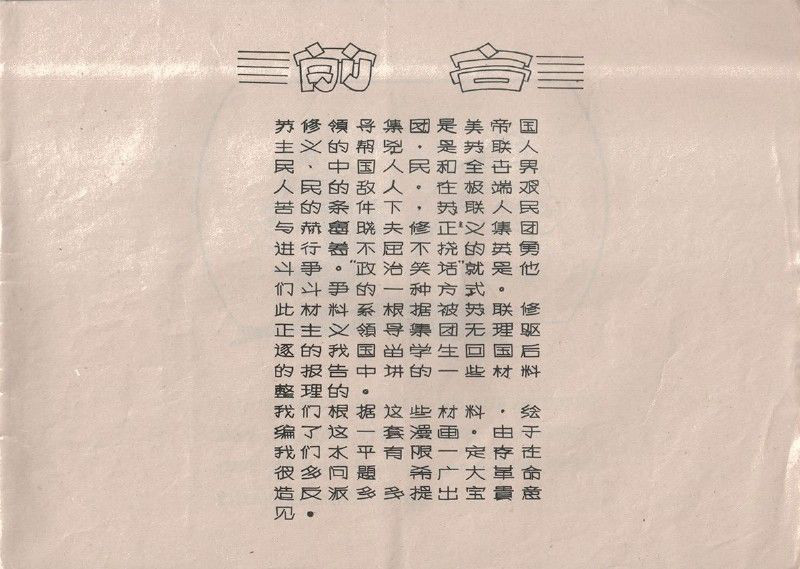 前言
苏修领导集团是美帝国
主义的帮兇，是苏联人
民、中国人民和全世界
人民的敌人。在极端艰
苦的条件下，苏联人民
与赫鲁晓夫修正义集团
进行着不屈不挠的英勇
斗争。"政治笑话"就是他
们斗争的一种方式。
此材料系根据被苏联修
正主义领导集团无理驱
逐的我国留学生回国后
的报告中讲的一些材料
整理的。
我们根据这些材料，绘
编了这一套漫画。由于
我们水平有限一定存在
很多问题 希广大革命
造反派多多提出宝贵意
见。